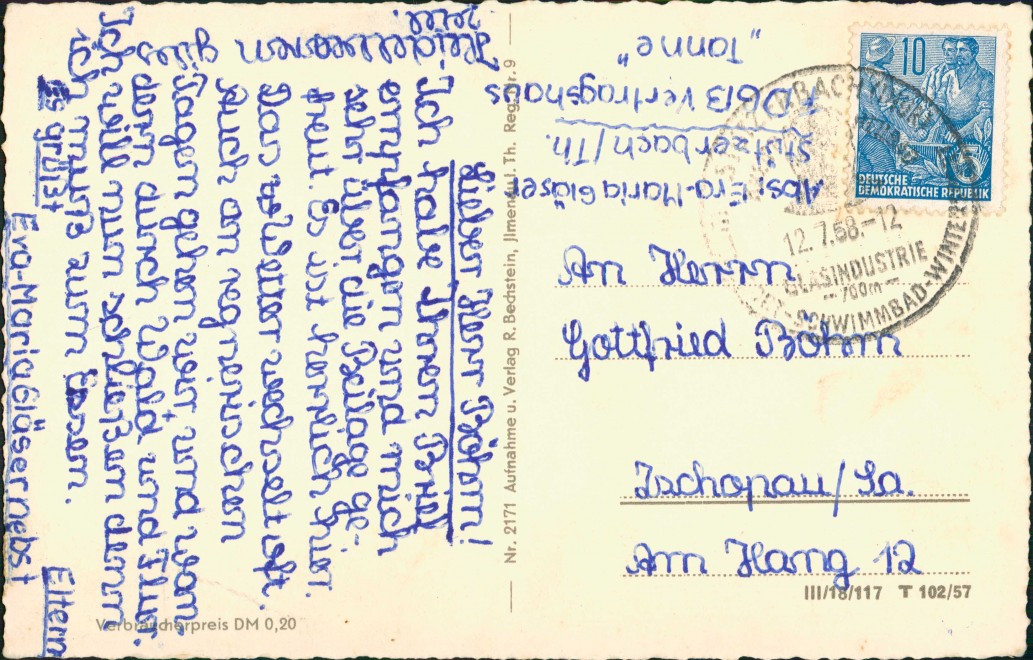 Lieber Herr Böhm!
Ich habe Ihren Brief
empfangen und mich
sehr über die Beilage ge-
freut. Es ist herrlich hier.
Das Wetter wechselt oft.
Auch an regnerischen
Tagen gehen wir, und wan-
dern durch Wald und Flur.
Ich will nun schließen denn
ich muß zum Essen.
Es grüßt
Eva-Maria Gläser nebst
Eltern
Heidelbeeren gibts
viel.
Abs: Eva-Maria Gläser
Stützerbach/Th.
FDGB Vertragshaus
"Tanne"
Nr. 2171 Aufnahme u. Verlag R. Bechstein, Jlmenau i. Th. Reg. Nr. 9
10
5
DEUTSCHE
DEMOKRATISCHE REPUBLIK
STÜTZERBACH (THÜR)
12.7.58.-12
GLASINDUSTRIE
-700m-
SCHWIMMBAD-WINTER
An Herrn
Gottfried Böhm
Zschopau/Sa.
Am Hang 12
III/18/117 T 102/57
Verbraucherpreis DM 0,20